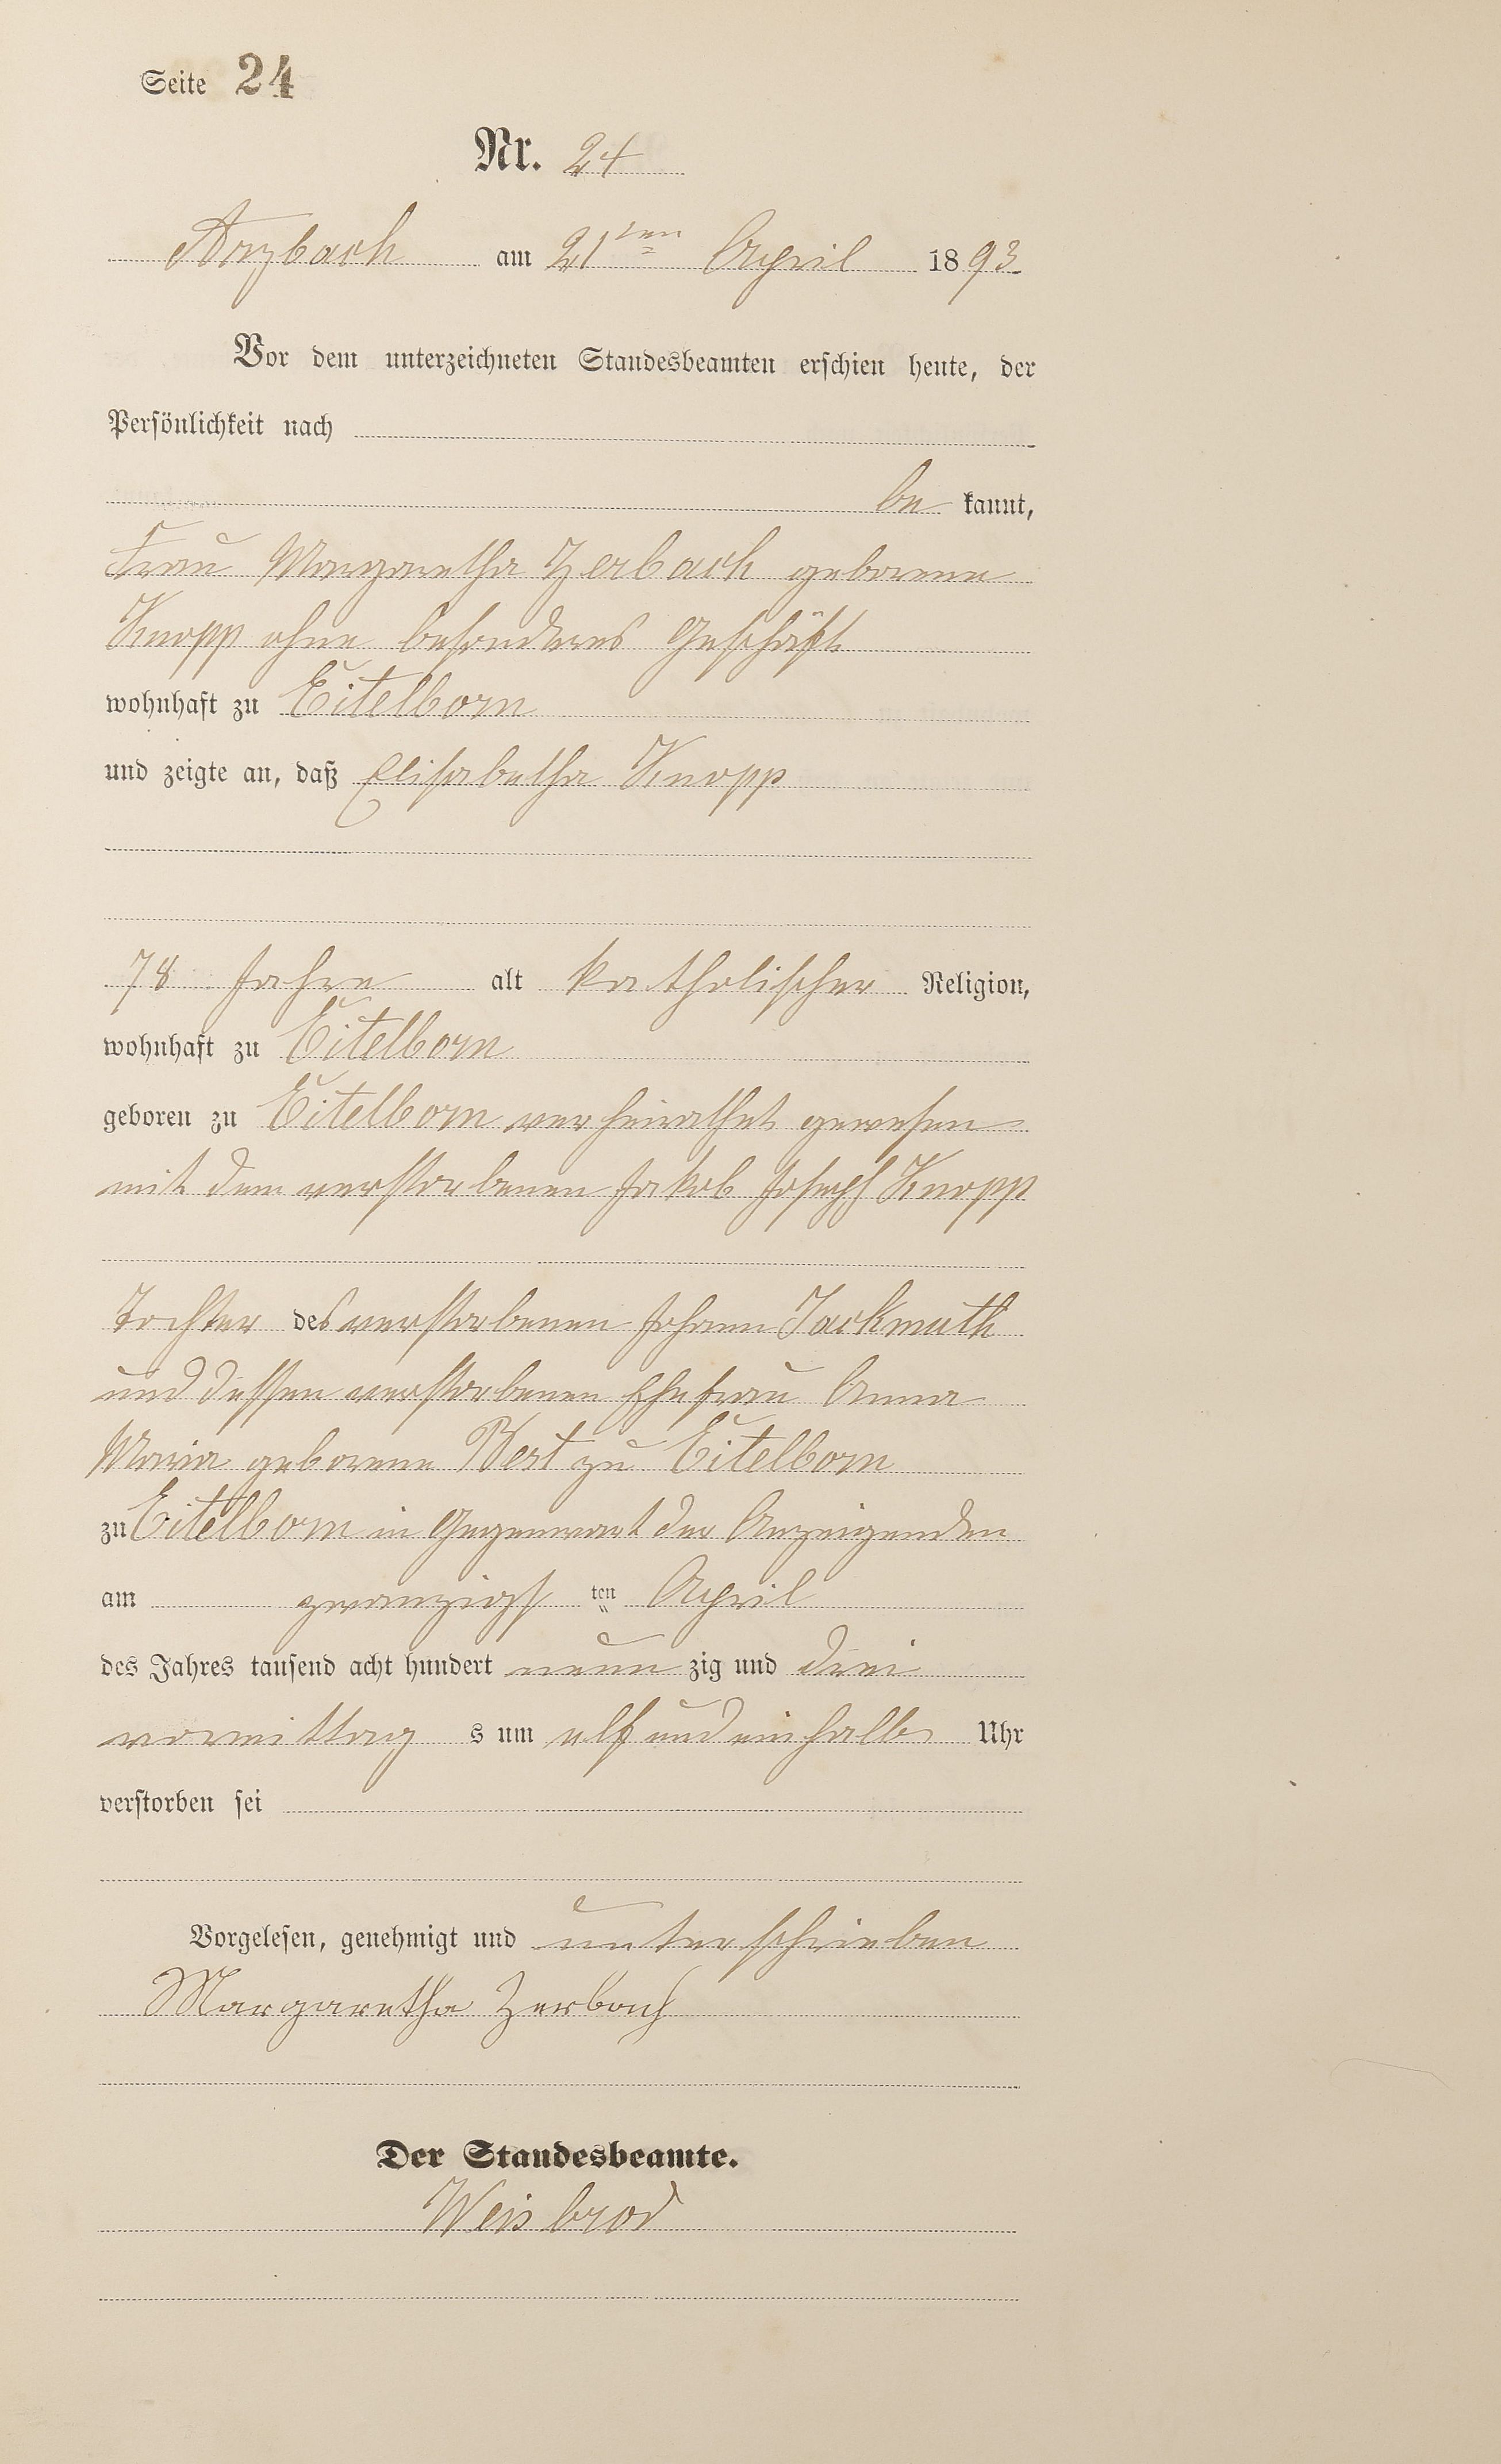 Seite 24
Nr. 24
Arzbach am 21ten April 1893
Vor dem unterzeichneten Standesbeamten erschien heute, der
Persönlichkeit nach
be kannt,
Frau Margaretha Zerbach geborene
Knopp ohne besonderes Geschäft
wohnhaft zu Eitelborn
und zeigte an, daß Elisabetha Knopp
78 Jahre alt katholischer Religion,
wohnhaft zu Eitelborn
geboren zu Eitelborn verheirathet gewesen
mit dem verstorbenen Jakob Joseph Knopp
Tochter des verstorbenen Johann Jackmuth
und dessen verstorbenen Ehefrau Anna
Maria geborene zu Eitelborn
zu Eitelborn in Gegenwart der Anzeigenden
am zwanzigst ten April
des Jahres tausend acht hundert neun zig und drei
vormittag s um elf und ein halb Uhr
verstorben sei
Vorgelesen, genehmigt und unterschrieben
Margaretha Zerbach
Der Standesbeamte.
Weisbrod